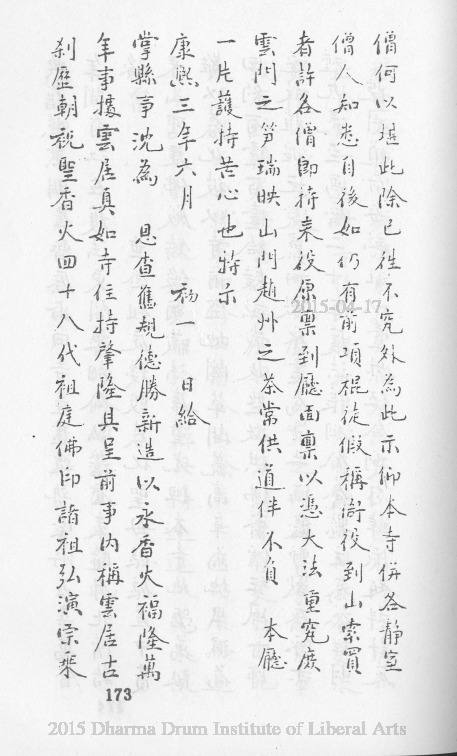 僧何以堪此除已往不究外為此示仰本寺併各靜室
僧人知悉自後如仍有前項棍徒假稱衙役到山索買
者許各僧即持來役原票到廳面稟以憑大法重究庶
雲門之笋瑞映山門趙州之茶常供道伴不負 本廳
一片護持苦心也特示
康熙三年六月 初一 日給
掌縣事沈為 恩查舊規德勝新造以永香火福隆萬
年事據雲居真如寺住持肇隆具呈前事內稱雲居古
刹歷朝祝聖香火四十八代祖庭佛印諸祖弘演宗乘
173
2015-04-17
2015 Dharma Drum Institute of Liberal Arts